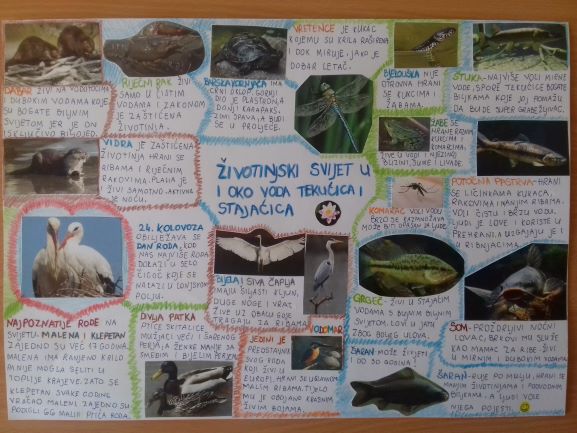 DABAR ŽIVI NA VODOTOCIMA
I DUBOKIM VODAMA KOJE
SU BOGATE BILJNIM
SVIJETOM JER JE ON
ISKLJUČIVO BILJOJED.
RIJEČNI RAK ŽIVI
SAMO U ČISTIM
VODAMA I ZAKONOM
JE ZAŠTIĆENA
ŽIVOTINJA.
BARSKA KORNJAČA IMA
CRNI OKLOP. GORNJI
DIO JE PLASTRON, A
DONJI KARAPAKS.
ZIMI SPAVA, A BUDI
SE U PROLJEĆE.
VRETENCE JE KUKAC
KOJEMU SU KRILA RAŠIRENA
I DOK MIRUJE, JAKO JE
DOBAR LETAČ.
BJELOUŠKA NIJE
OTROVNA. HRANI
SE KUKCIMA I
ŽABAMA.
ŠTUKA-NAJVIŠE VOLI MIRNE
VODE, SPORE TEKUĆICE BOGATE
BILJKAMA KOJE JOJ POMAŽU
DA BUDE SUPER GRABEŽLJIVAC.
ŽABE SE
HRANE RAZNIM
KUKCIMA I
KOMARCIMA.
ŽIVE U VODI I NJEZINOJ
BLIZINI, ŠUME I LIVADE.
VIDRA JE ZAŠTIĆENA
ŽIVOTINJA. HRANI SE
RIBAMA I RIJEČNIM
RAKOVIMA. PLAHA JE
I ŽIVI SAMOTNO. AKTIVNA
JE NOĆU.
ŽIVOTINJSKI SVIJET U
I OKO VODA TEKUĆICA I
STAJAĆICA
KOMARAC VOLI VODU
BRZO SE RAZMNOŽAVA
MOŽE BITI OPASAN ZA LJUDE.
POTOČNA PASTRVA-HRANI
SE LIČINKAMA KUKACA,
RAKOVIMA I MANJIM RIBAMA.
VOLI ČISTU I BRZU VODU.
LJUDI JE LOVE I KORISTE U
PREHRANI, A UZGAJAJU JE I
U RIBNJACIMA.
24. KOLOVOZA
OBILJEŽAVA SE
DAN RODA, KOD
NAS NAJVIŠE RODA
DOLAZI U SELO
ČIGOČ KOJE SE
NALAZI U LONJSKOM
POLJU.
BIJELA I SIVA ČAPLJA
IMAJU ŠILJASTI KLJUN,
DUGE NOGE I VRAT.
ŽIVE UZ OBALU GDJE
TRAGAJU ZA RIBAMA.
GRGEČ- ŽIVI U STAJAĆIM
VODAMA S BUJNIM BILJNIM
SVIJETOM. LOVI U JATU
ZBOG BOLJEG ULOVA.
SOM-PROŽDRLJIVI NOĆNI
LOVAC, BRKOVI MU SLUŽE
KAO MAMAC ZA RIBE. ŽIVI
U MIRNIM I DUBOKIM VODAMA.
NAJPOZNATIJE RODE NA
SVIJETU, MALENA I KLEPETAN
ZAJEDNO SU VEĆ 17 GODINA.
MALENA IMA RANJENO KRILO
PA NIJE MOGLA SELITI U
TOPLIJE KRAJEVE. ZATO SE
KLEPETAN SVAKE GODINE
VRAĆAO MALENI. ZAJEDNO SU
PODIGLI 66 MALIH PTIĆA RODA.
DIVLJA PATKA
PTICE SKITALICE,
MUŽJACI VEĆI I ŠARENOG
PERJA, A ŽENKE MANJE SA
SMEĐIM I BIJELIM PERJEM.
VODOMAR
JEDINI JE
PREDSTAVNIK
SVOG RODA
KOJI ŽIVI U
EUROPI. HRANI SE UGLAVNOM
MALIM RIBAMA. TIJELO
MU JE OBOJANO KRASNIM
ŽIVIM BOJAMA.
ŠARAN MOŽE ŽIVJETI
I DO 30 GODINA!
ŠARAN-RUJE PO MULJU, HRANI SE
MANJIM ŽIVOTINJAMA I PODVODNIM
BILJKAMA, A LJUDI VOLE
NJEGA POJESTI.